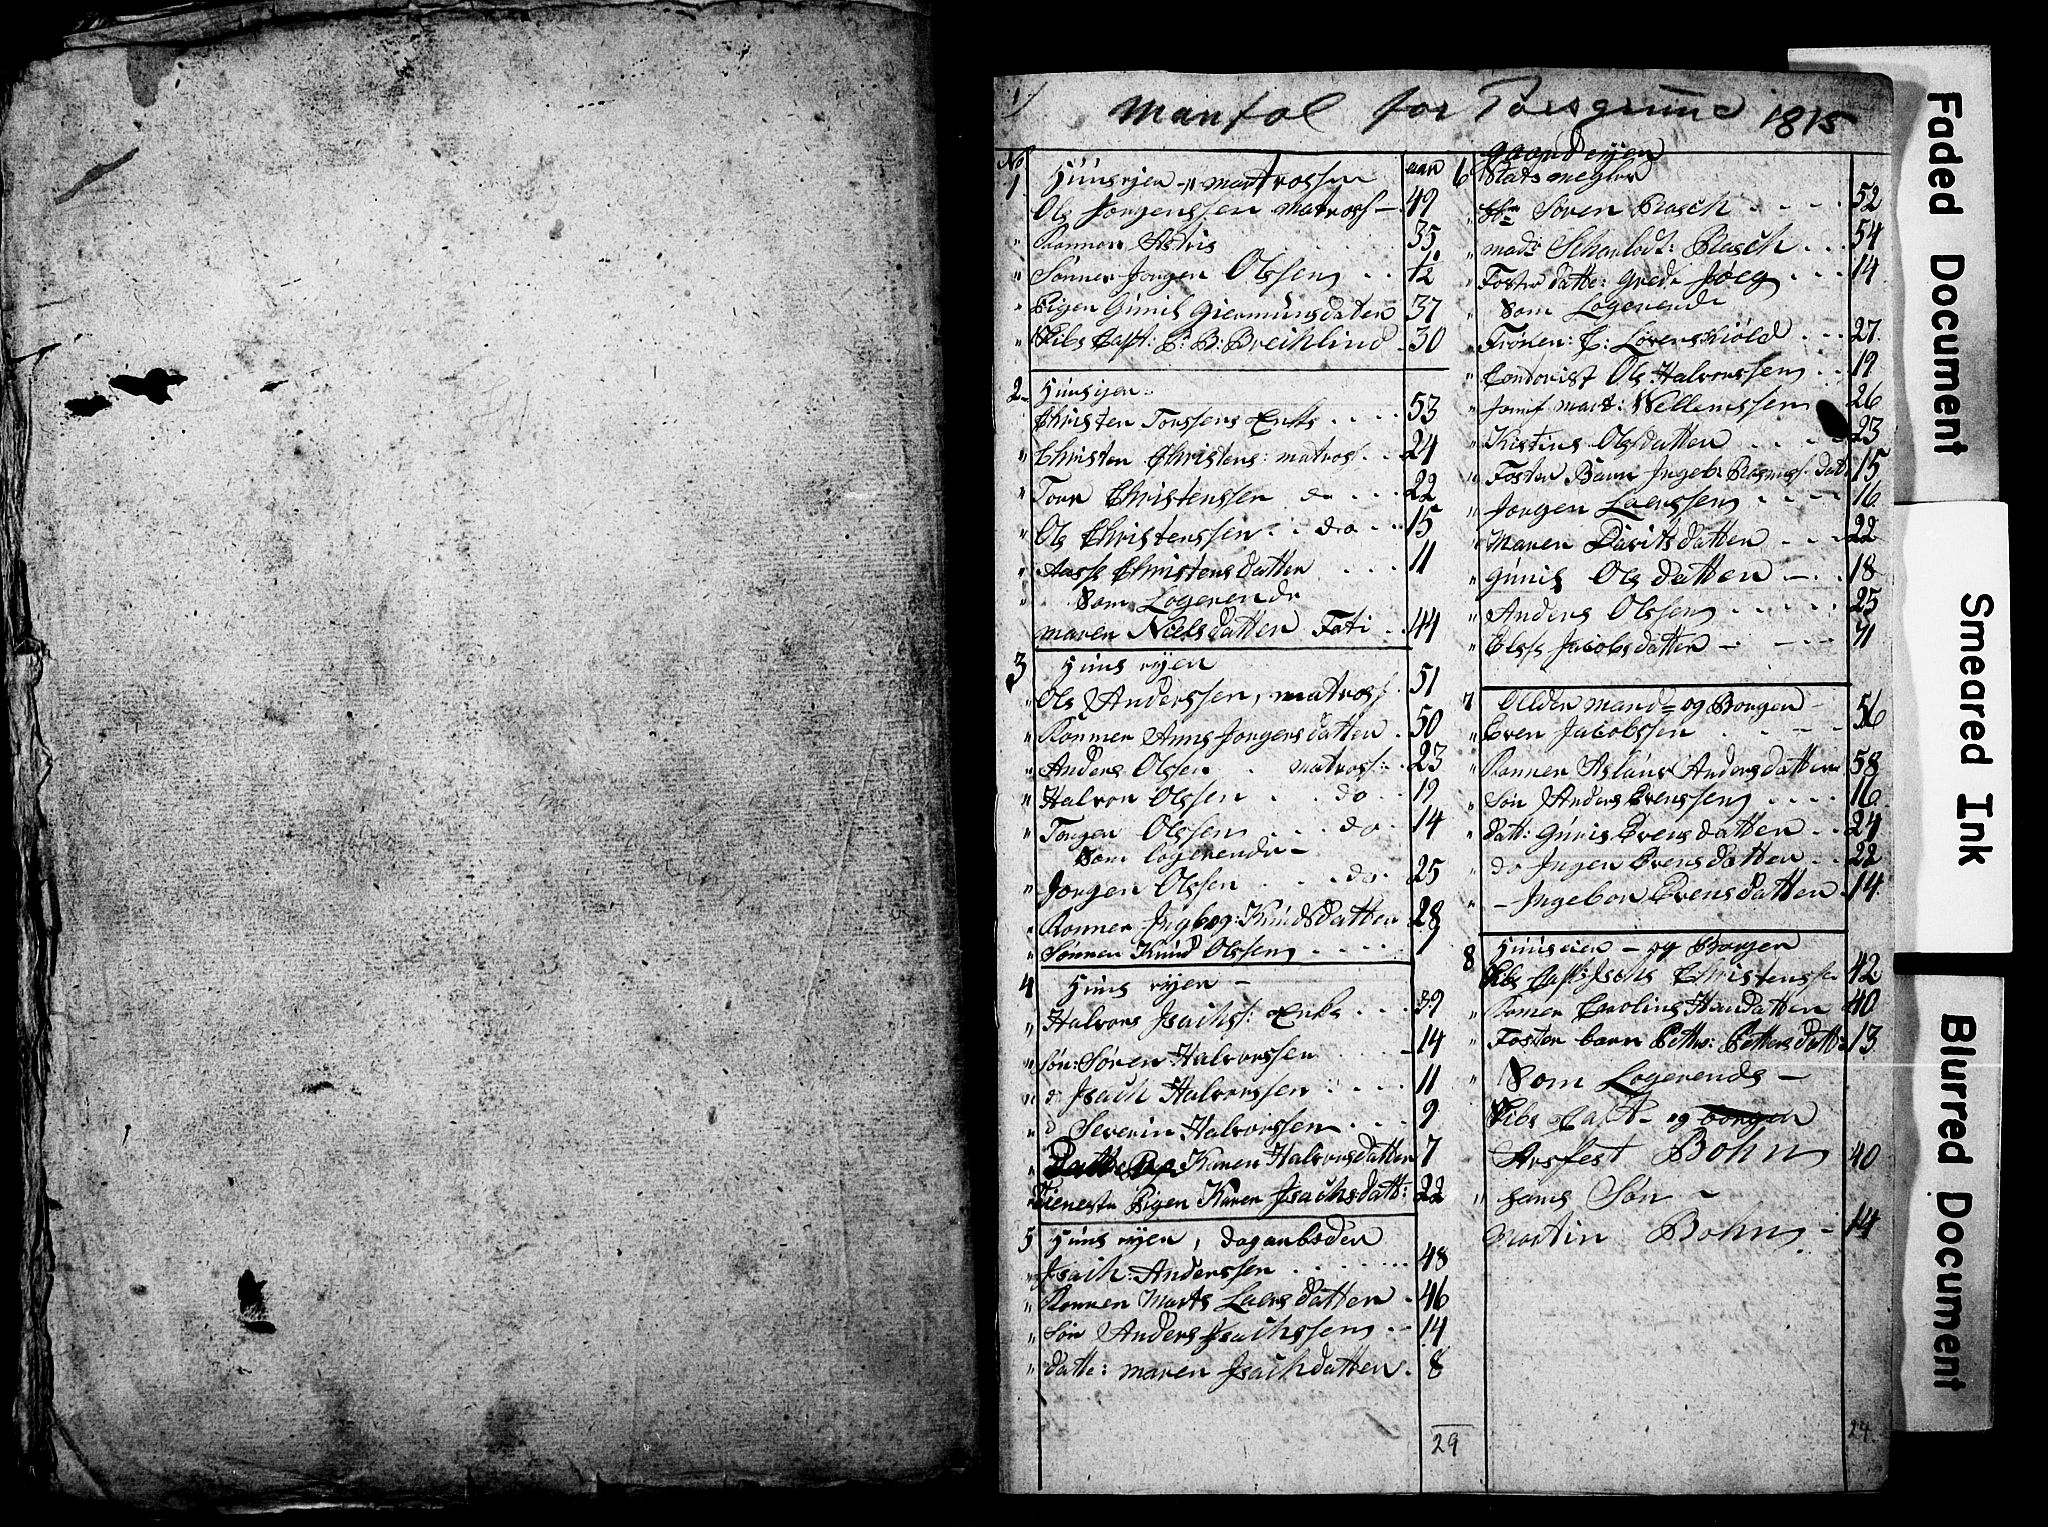 1)
Mantal for Porsgrund 1815
No
aar
1. Huusejer n matrossen
Ole Jørgenssen matross - 49
" Konnen Astris 35
" Sønnen Jørgen Olssen . . 1/2
" Pigen Gunil Giermunsdaten 37
" Skibs Capt: C: B: Breihlind . 30
2 - Huusejer
Christen Torssens Enke . . . . 53
" Christen Christens: matros . . 24
" Torr Christenssen do . . . 22
" Ole Christenssen . . do . . . 15
" Aasse Christensdatter . . . . 11
" Som Logerende
Maren Nielsdatter Fati . . 44
3 Huus ejer
" Ole Anderssen, matross . 51
" Konnen Anne Jørgensdatter . 50
" Anders Olssen . matross: . 23
" Halvor Olssen . . do . 19
" Torgen Olssen . . . do . 14
Som logerende -
" Jørgen Olssen . . . do . 25
" Konnen Ingbog: Knudsdatter 28
" Sønnen Knud Olssen . . . . . 1
4 Huus ejer -
" Halvors Isachs: Enke . . . 39
" Søn: Søren Halvorssen 14
" do Isach Halvorssen . . . . 11
" do Severin Halvorssen . . . 9
" Karen Halvorsdatter 7
Tieneste Pigen Karen Isachsdatt: 22
5 Huus ejer, dagarbeder
" Isach: Anderssen . . . . . . . 48
" Konnen Marte Larsdatter . 46
" Søn Anders Isachssen . . . 14
" Datte: Maren Isachdatter . 8
29
6 Gaardejer
Statsmegler
" Hr Søren Basch . . . . 52
" mad: Scharlodt: Basch . . . 54
" Foster datte: Grede Joeg . . . 14
" Som Logerende
" Frøken: C: Løvenskiold . . . 27
" Condorist Ole Halvorssen . . 19
" Jomf mart: Wellemssen 26
" Kistine Olsdatter . . . . 23
" Foster Barn Ingeb: Rasmus: dat: 15
" Jørgen Laerssen . . . . 16
" Maren Davitsdatter . . . 22
" Gunil Olsdatter - . . 18
" Anders Olssen . . . . . 25
" Elsse Jacobsdatter - - - . . 71
7 Olldermand = og Borger -
" Even Jacobssen . . . - - 56
" Konnen Aslaug Andersdatter 58
" Søn Anders Evenssen . . . . 16
" datt: Guris Evensdatter . . 24
" do Ingen Evensdatter . . 22
" - Ingebor Evensdatter . 14
8 Huuseier - og Borger
Skibs Capt: Isach Christenssen 42
" Konen Caroline Hansdatter 40
" Foster barn Petter: Pettersdatt: 13
" Som Logerende -
Skibs Capt - og borger
Arsfest Bohn 40
" hans Søn -
Martin Bohn . - 14
24
Faded Document
Smeared Ink
Blurred Document